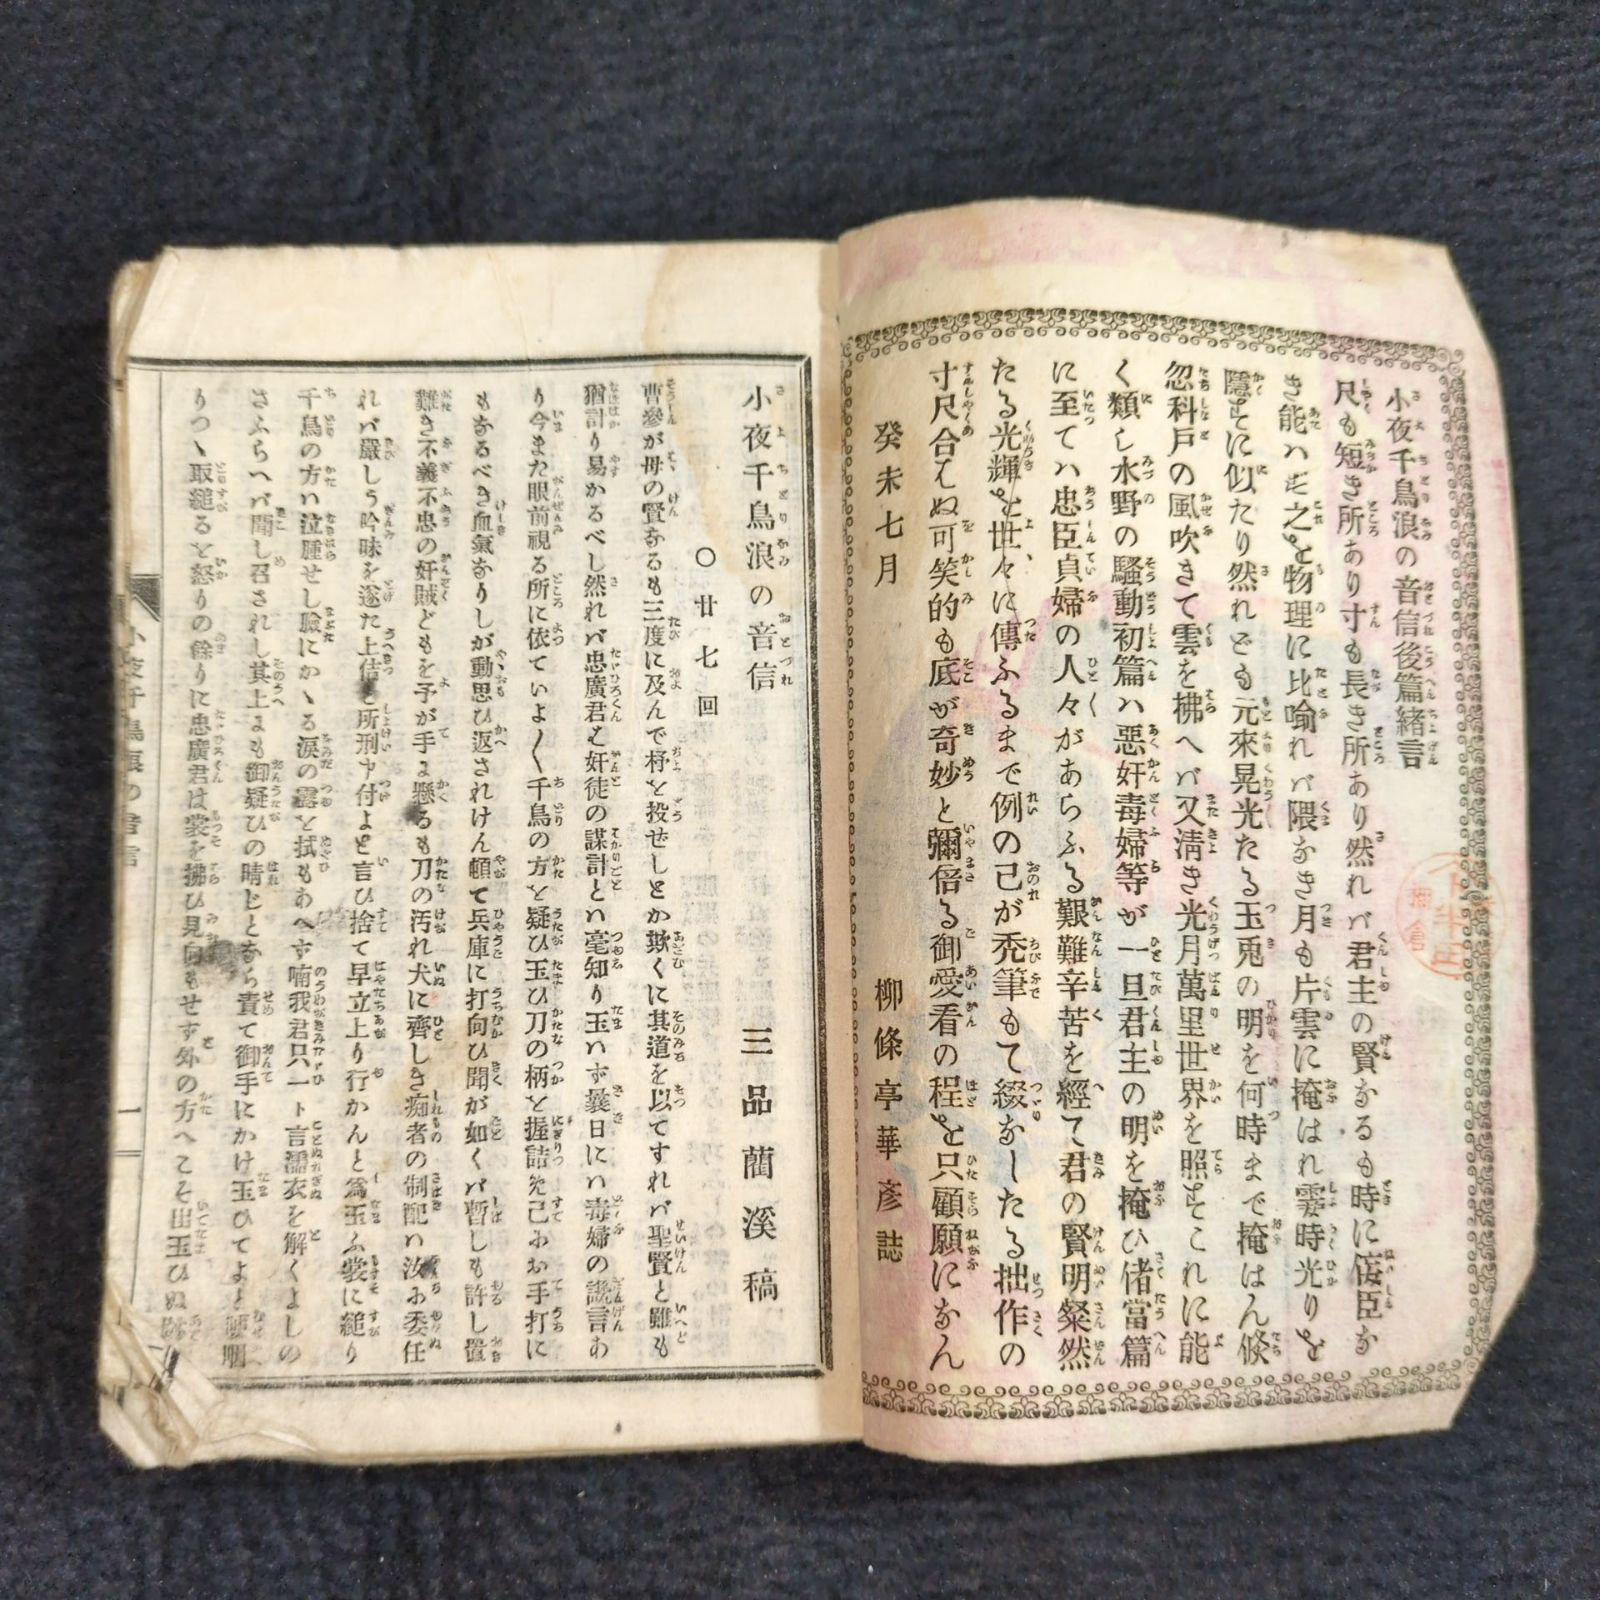 小夜千鳥浪の音信後篇緒言
尺も短き所あり寸も長き所あり然れバ君主の賢なるも時に佞臣な
き能ハず之を物理に比喩れバ隈なき月も片雲に掩はれ霎時光りを
隱すに似たり然れども元來晃光たる玉兎の明を何時まで掩はん倏
忽科戸の風吹きて雲を拂へバ又清き光月萬里世界を照すこれに能
く類し水野の騒動初篇ハ惡奸毒婦等が一旦君主の明を掩ひ偖當篇
に至てハ忠臣貞婦の人々があらふる艱難辛苦を經て君の賢明粲然
たる光輝を世々に傳ふるまで例の己が禿筆もて綴なしたる拙作の
寸尺合はぬ可笑的も底が奇妙と彌倍る御愛看の程を只顧願になん
癸未七月 柳條亭華彦誌
小夜千鳥浪の音信 三品藺溪稿
○廿七回
曹參が母の賢なるも三度に及んで杼を投せしとか欺くに其道を以てすれバ聖賢と雖も
猶計り易かるべし然れバ忠廣君は奸徒の謀計とハ毫知り玉ハず曩日にハ毒婦の讒言あ
り今また眼前視る所に依ていよ〱千鳥の方を疑ひ玉ひ刀の柄を握詰そ己にお手打に
もなるべき血氣なりしが動思ひ返されけん頓て兵庫に打向ひ聞が如くバ暫しも許し置
難き不義不忠の奸賊どもを予が手に懸るも刀の汚れ犬に齊しき痴者の制配ハ汝に委任
れバ嚴しう吟味を遂た上佶と所刑申付よと言ひ捨て早立上り行かんと爲玉ふ裳に縋り
千鳥の方ハ泣腫せし臉にかヽる涙の露を拭もあへず喃我君只一ト言濡衣を解くよしの
さふらヘバ聞し召されし其上にも御疑ひの晴じとなら責て御手にかけ玉ひてよと
りつヽ取縋るを怒りの餘りに忠廣君は裳を拂ひ見向もせず外の方へこそ出玉ひぬ